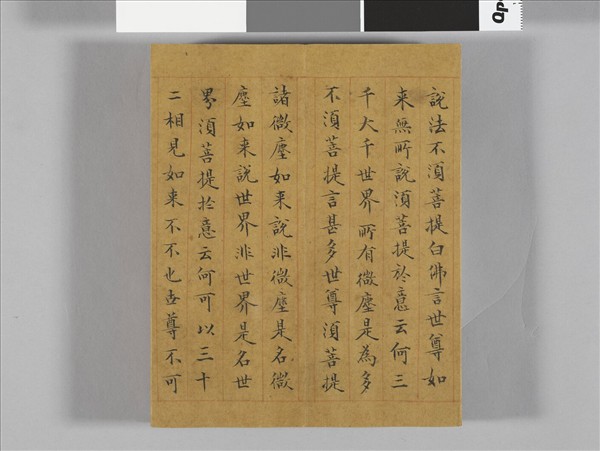 說法不須菩提白佛言世尊如
来無所說須菩提於意云何三
千大千世界所有微塵是為多
不須菩提言甚多世尊須菩提
諸微塵如来說非微塵是名微
塵如来說世界非世界是名世
界須菩提於意云何可以三十
二相見如来不不也世尊不可